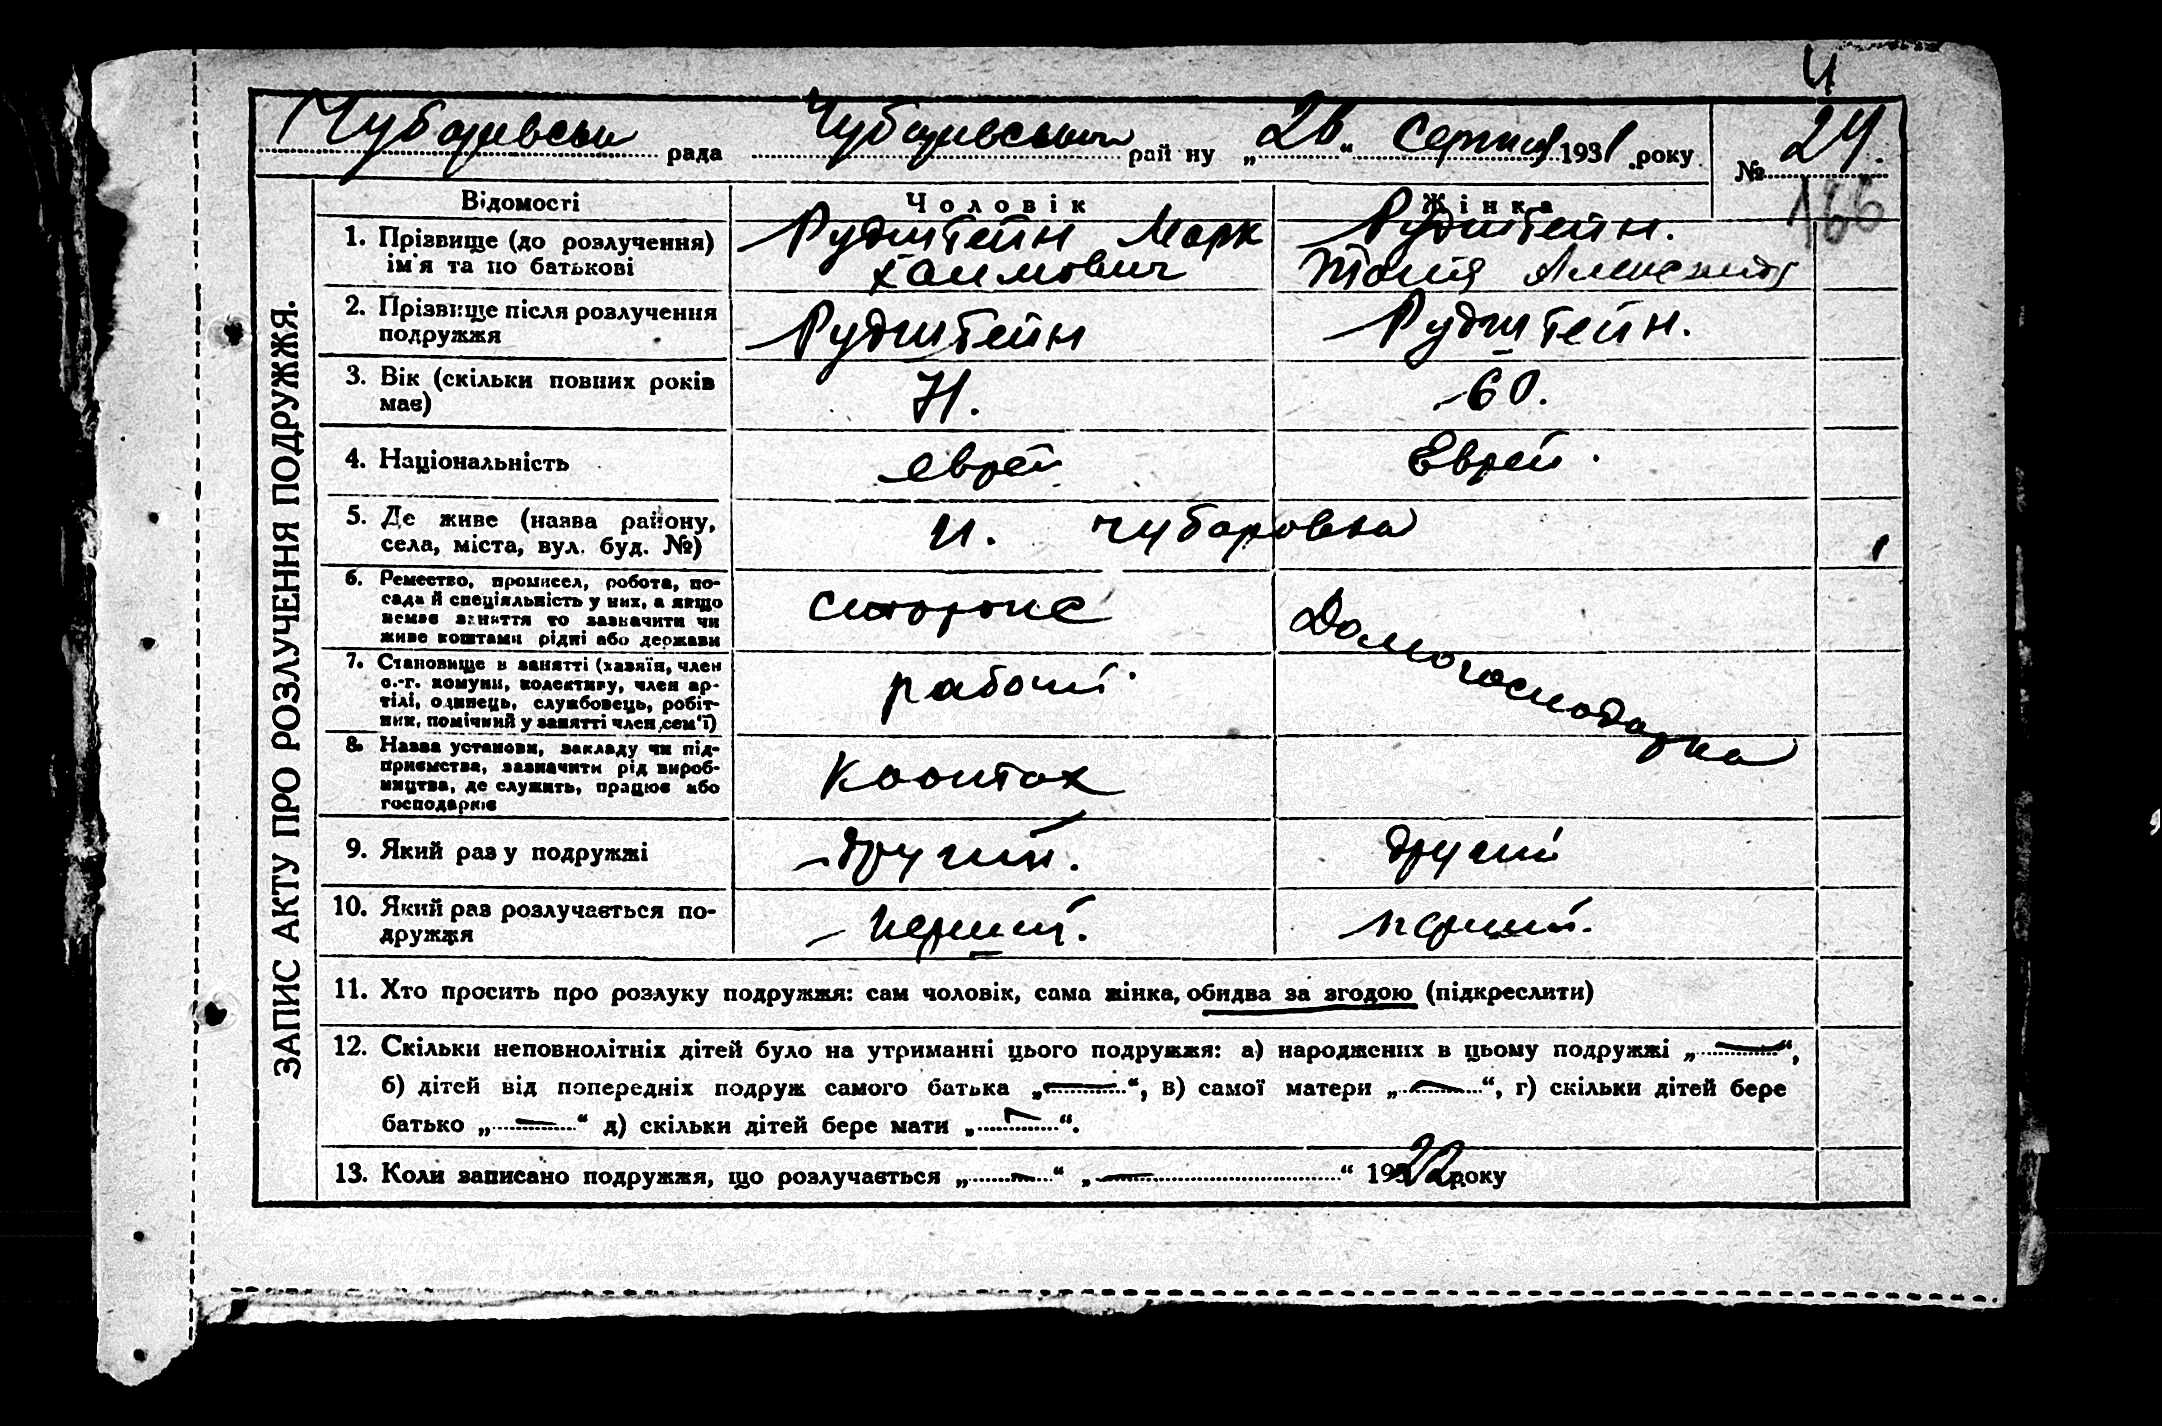 ч
Чубарівська рада Чубарівського рай ну „26“ Серпня 1931 .року № 24.
166
ЗАПИС АКТУ ПРО РОЗЛУЧЕННЯ ПОДРУЖЖЯ.
Відомості Чоловік Жінка
1. Прізвище (до розлучення) Рудштейн Марк Рудштейн.
ім'я та по батькові Хаимович
2. Прізвище після розлучення Рудштейн Рудштейн.
подружжя
3. Вік (скільки повних років 71. 60.
має)
4. Національність еврей Еврей.
5. Де живе (назва району, н. Чубаровка
села, міста, вул. буд. №)
6. Ремество, промисел, робота, по-
сада й спеціяльність у них, а якщо
немає заняття то зазначити чи
живе коштами рідні або держави
Домогосподарка
7. Становище в занятті (хазяїн, член
с.-г. комуни, колективу, член ар-
тілі, одинець, службовець, робіт-
ник, помічний у занятті член сем'ї)
рабочий
8. Назва установи, закладу чи під-
приємства, зазначити рід вироб-
ництва, де служить, працює або
господарює
9. Який раз у подружжі другий. другий
10. Який раз розлучається по- перший. перший.
дружжя
11. Хто просить про розлуку подружжя: сам чоловік, сама жінка, обидва за згодою (підкреслити)
12. Скільки неповнолітніх дітей було на утриманні цього подружжя: а) народжених в цьому подружжі „—“,
б) дітей від попередніх подруж самого батька „—“, в) самої матери „—“, г) скільки дітей бере
батько „—“ д) скільки дітей бере мати „—“.
13. Коли записано подружжя, що розлучається „—“ „—“ 1922 року